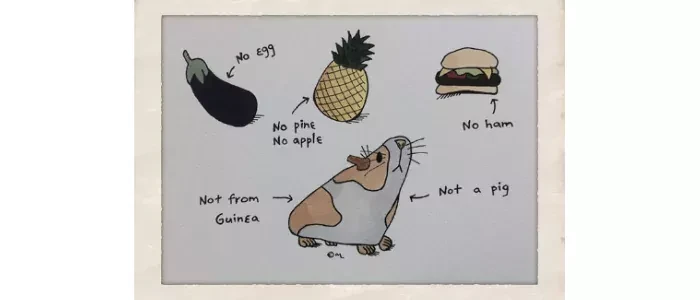 No egg
No pine
No apple
No ham
Not from
Guinea
Not a pig
©M.